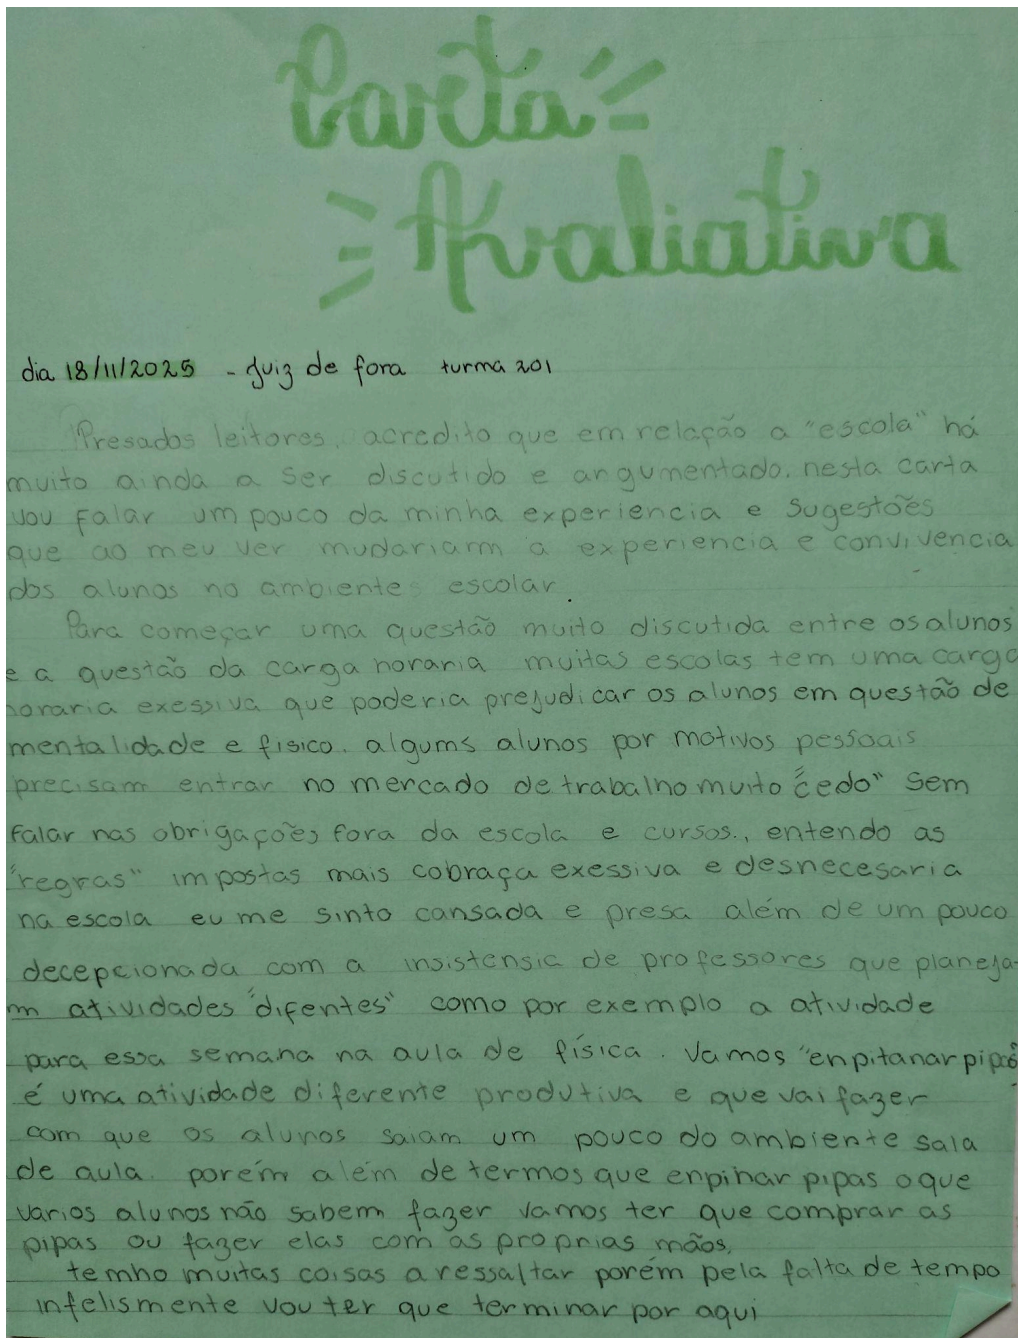 Carta
Avaliativa
dia 18/11/2025 - Juiz de fora turma 201
Presados leitores, acredito que em relação a "escola" há
muito ainda a ser discutido e argumentado. nesta carta
vou falar um pouco da minha experiencia e sugestões
que ao meu ver mudariarm a experiencia e convivencia
dos alunos no ambiente escolar.
Para começar uma questão muito discutida entre os alunos
e a questão da carga horaria muitas escolas tem uma carga
horaria exessiva que poderia prejudicar os alunos em questão de
mentalidade e fisico. algums alunos por motivos pessoais
precisam entrar no mercado de trabalho muito "cedo" sem
falar nas obrigações fora da escola e cursos., entendo as
"regras" impostas mais cobraça exessiva e desnecesaria
na escola eu me sinto cansada e presa além de um pouco
decepcionada com a insistensia de professores que planeja-
m atividades "difentes" como por exemplo a atividade
para essa semana na aula de física. Vamos "enpitanar pipas"
é uma atividade diferente produtiva e que vai fazer
com que os alunos saiam um pouco do ambiente sala
de aula. porém além de termos que enpinar pipas oque
varios alunos não sabem fazer vamos ter que comprar as
pipas ou fazer elas com as proprias mãos.
temho muitas coisas a ressaltar porém pela falta de tempo
infelismente vou ter que terminar por aqui